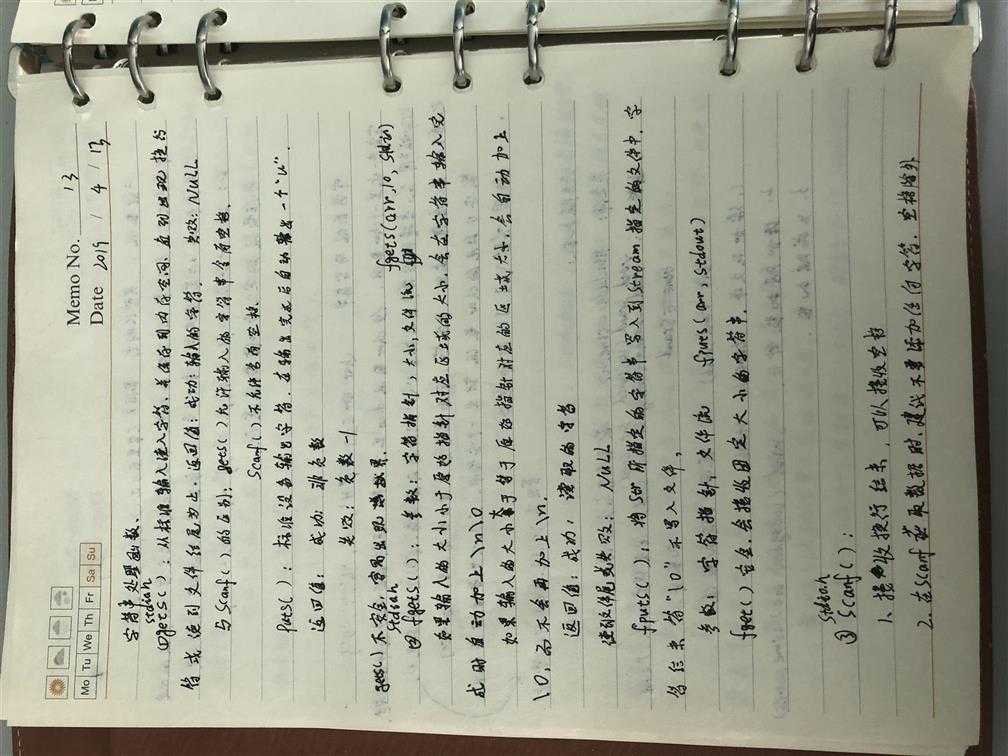 Memo No. 13
Mo Tu We Th Fr Sa Su
Date 2019 / 4 / 13
字符串处理函数、
stdin
①gets()：从标准输入读入字符、并保存到内存空间、直到出现换行
符或读到文件结尾为止、返回值：成功：输入的字符． 失败：NULL
与scanf()的区别：gets()允许输入的字符串含有空格、
scanf()不允许含有空格．
puts()：标准设备输出字符．在输出完之后自动输出一个"\n"．
返回值：成功：非负数
失败：负数-1
gets()不安全，容易出现越界．
stdin
② fgets()：参数：字符指针，大小，文件流 fgets(arr,10,stdin)
如果输入的大小小于原始指针对应区域的大小．会在字符串输入完
成时自动加上\n\0
如果输入的大小大于等于原始指针对应的区域大小，会自动加上
\0，而不会再加上\n．
返回值：成功：读取的字符
读到文件尾或失败：NULL
fputs()：将str所指定的字符串写入到stream指定的文件中．字
符结束符"\0"不写入文件，
参数：字符指针，文件流 fputs(arr,stdout)
fget()安全．会接收固定大小的字符串．
stdin
③ scanf()：
1、接收换行结束，可以接收空格
2、在scanf获取数据时．建议不要添加任何字符．空格除外